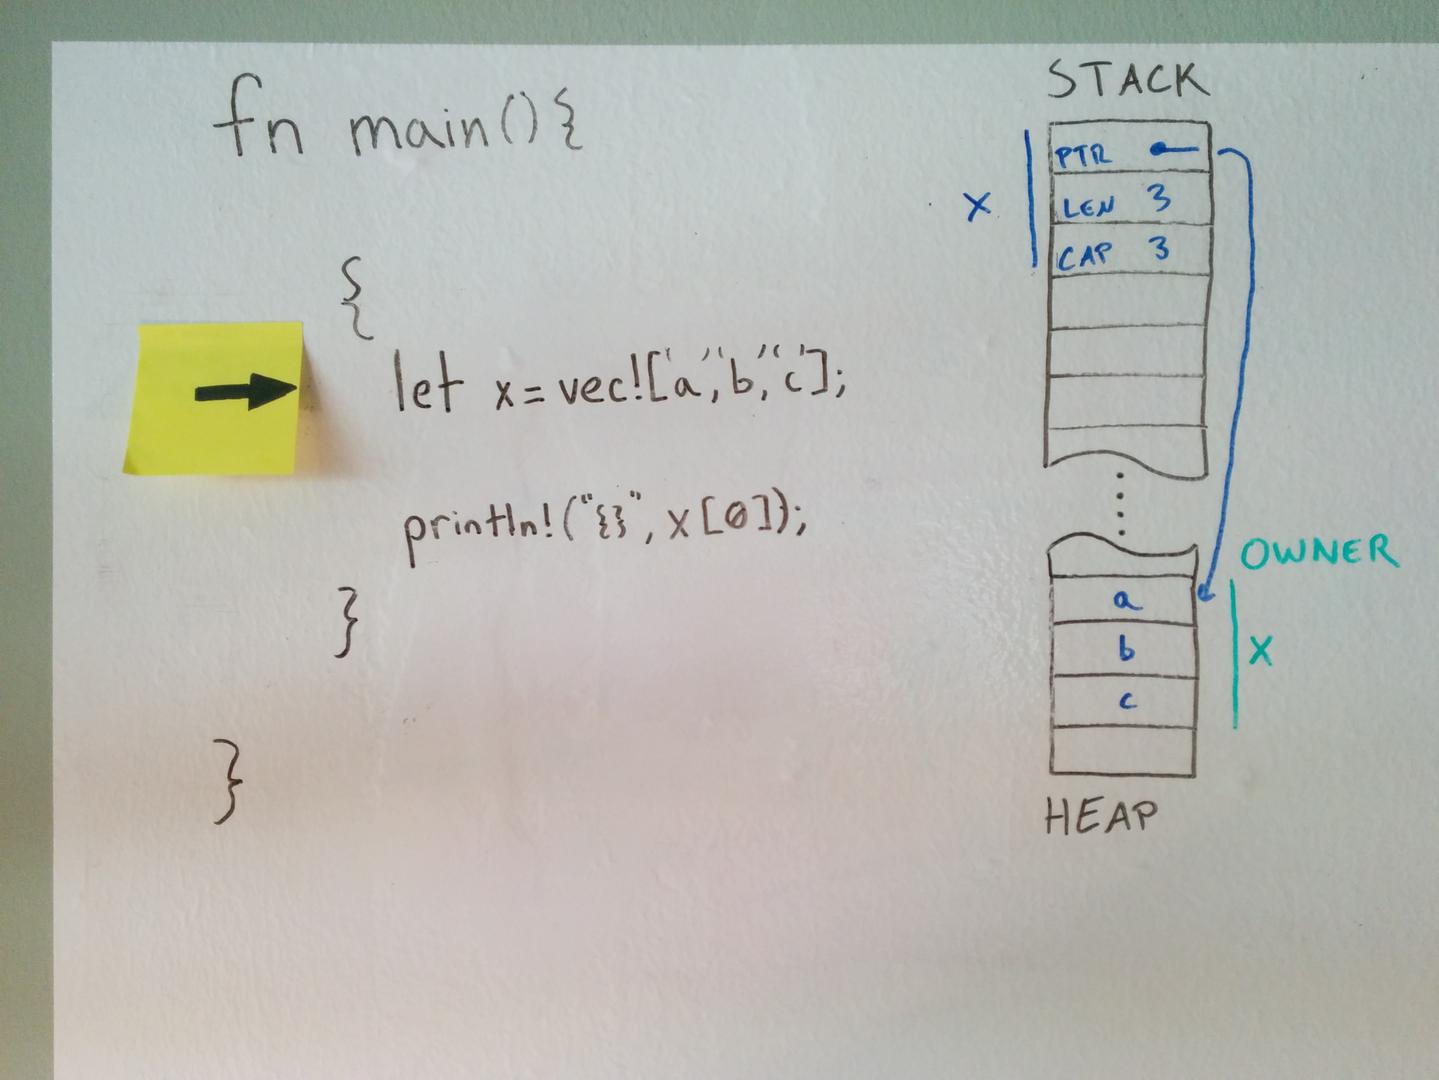 fn main(){
{
let x=vec!['a','b','c'];
println!("{}",x[0]);
}
}
STACK
x
PTR
LEN 3
CAP 3
OWNER
a
b
c
x
HEAP